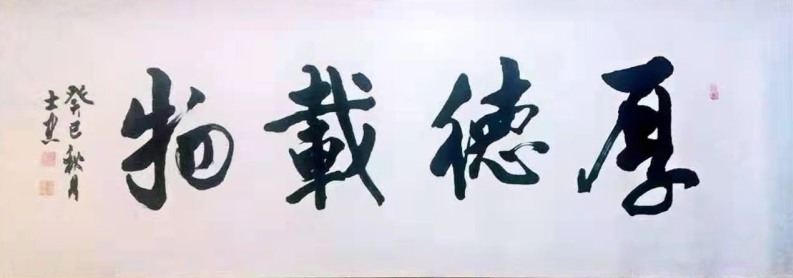 厚德載物
癸巳秋月